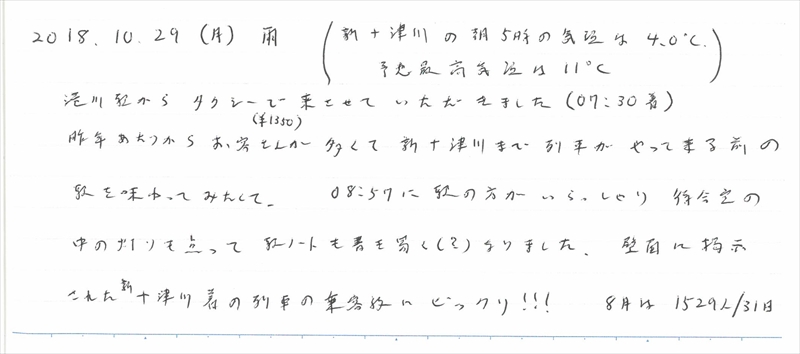 2018.10.29（月）雨
（新十津川の朝5時の気温は4.0℃.
予想最高気温は11℃）
滝川駅からタクシーで来させていただきました（07:30着）
（¥1350）
昨年あたりからお客さんが多くて新十津川まで列車がやって来る前の
駅を味わってみたくて。 08:57に駅の方がいらっしゃり待合室の
中の灯りも点って駅ノートも書き易く（?）なりました。壁面に掲示
された新十津川着の列車の乗客数にビックリ!!! 8月は1529人/31日